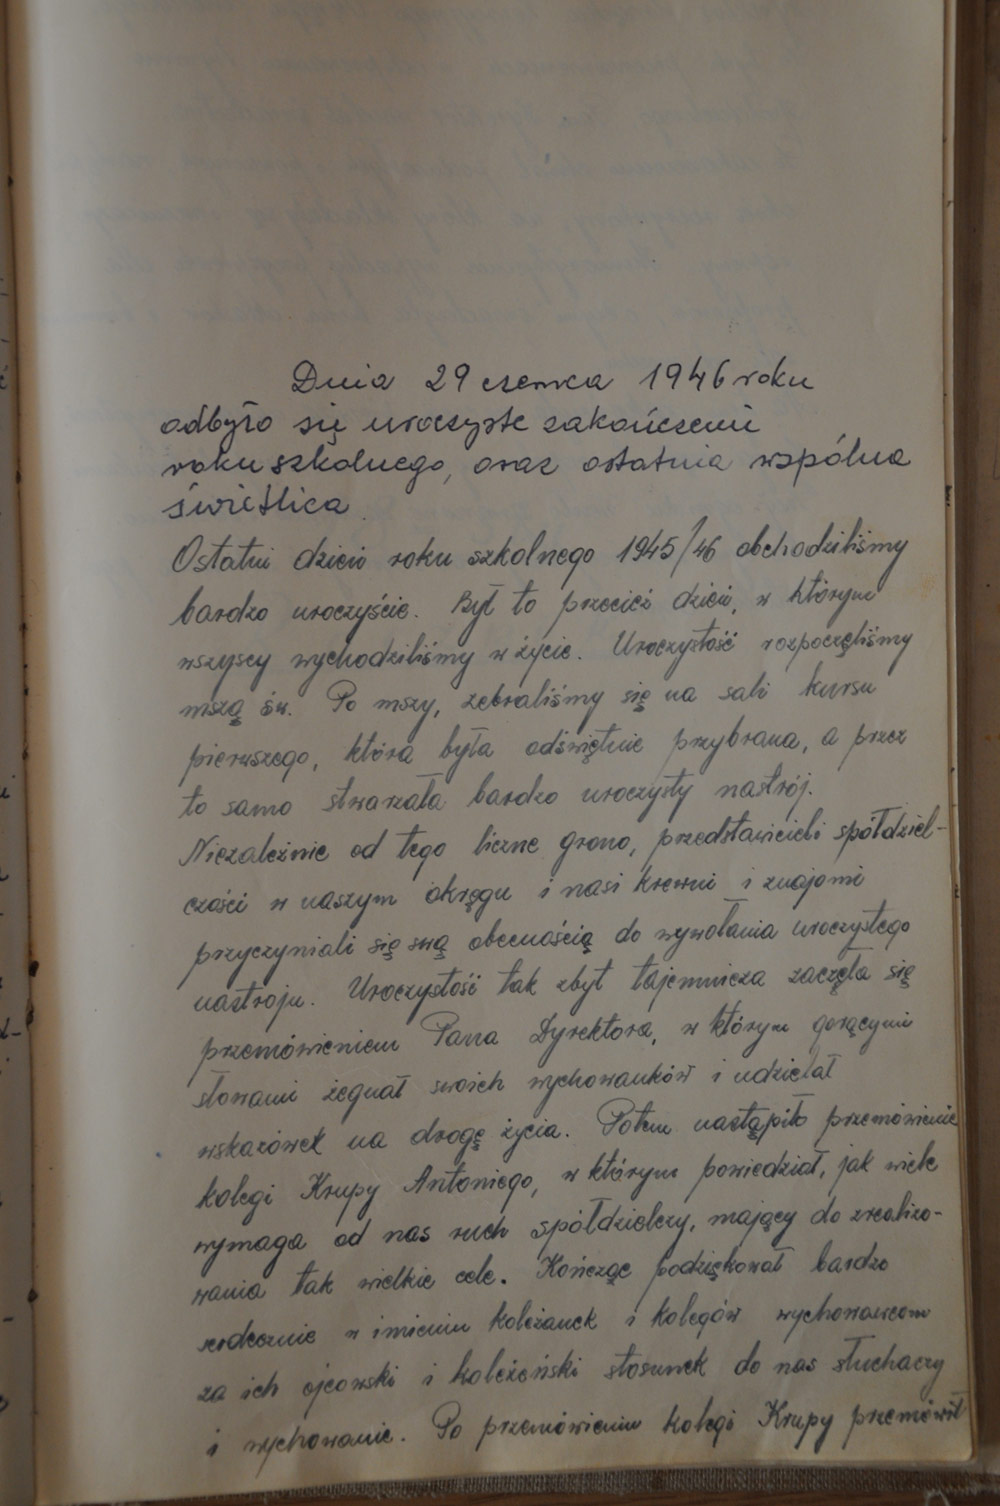 Dnia 29 czerwca 1946 roku
odbyło się uroczyste zakończenie
roku szkolnego, oraz ostatnia wspólna
świetlica
Ostatni dzień roku szkolnego 1945/46 obchodziliśmy
bardzo uroczyście. Był to przecież dzień, w którym
wszyscy wychodziliśmy w życie. Uroczystość rozpoczęliśmy
mszą św. Po mszy, zebraliśmy się na sali kursu
pierwszego, która była odświętnie przybrana, a przez
to samo stwarzała bardzo uroczysty nastrój.
Niezależnie od tego liczne grono, przedstawicieli spółdziel-
czości w naszym okręgu i nasi krewni i znajomi
przyczyniali się swą obecnością do wywołania uroczystego
nastroju. Uroczystość tak zbyt tajemnicza zaczęła się
przemówieniem Pana Dyrektora, w którym gorącymi
słowami żegnał swoich wychowanków i udzielał
wskazówek na drogę życia. Potem nastąpiło przemówienie
kolegi Krupy Antoniego, w którym powiedział, jak wiele
wymaga od nas ruch spółdzielczy, mający do zrealizo-
wania tak wielkie cele. Kończąc podziękował bardzo
serdecznie w imieniu koleżanek i kolegów wychowawcom
za ich ojcowski i koleżeński stosunek do nas słuchaczy
i wychowanie. Po przemówieniu kolegi Krupy przemówił